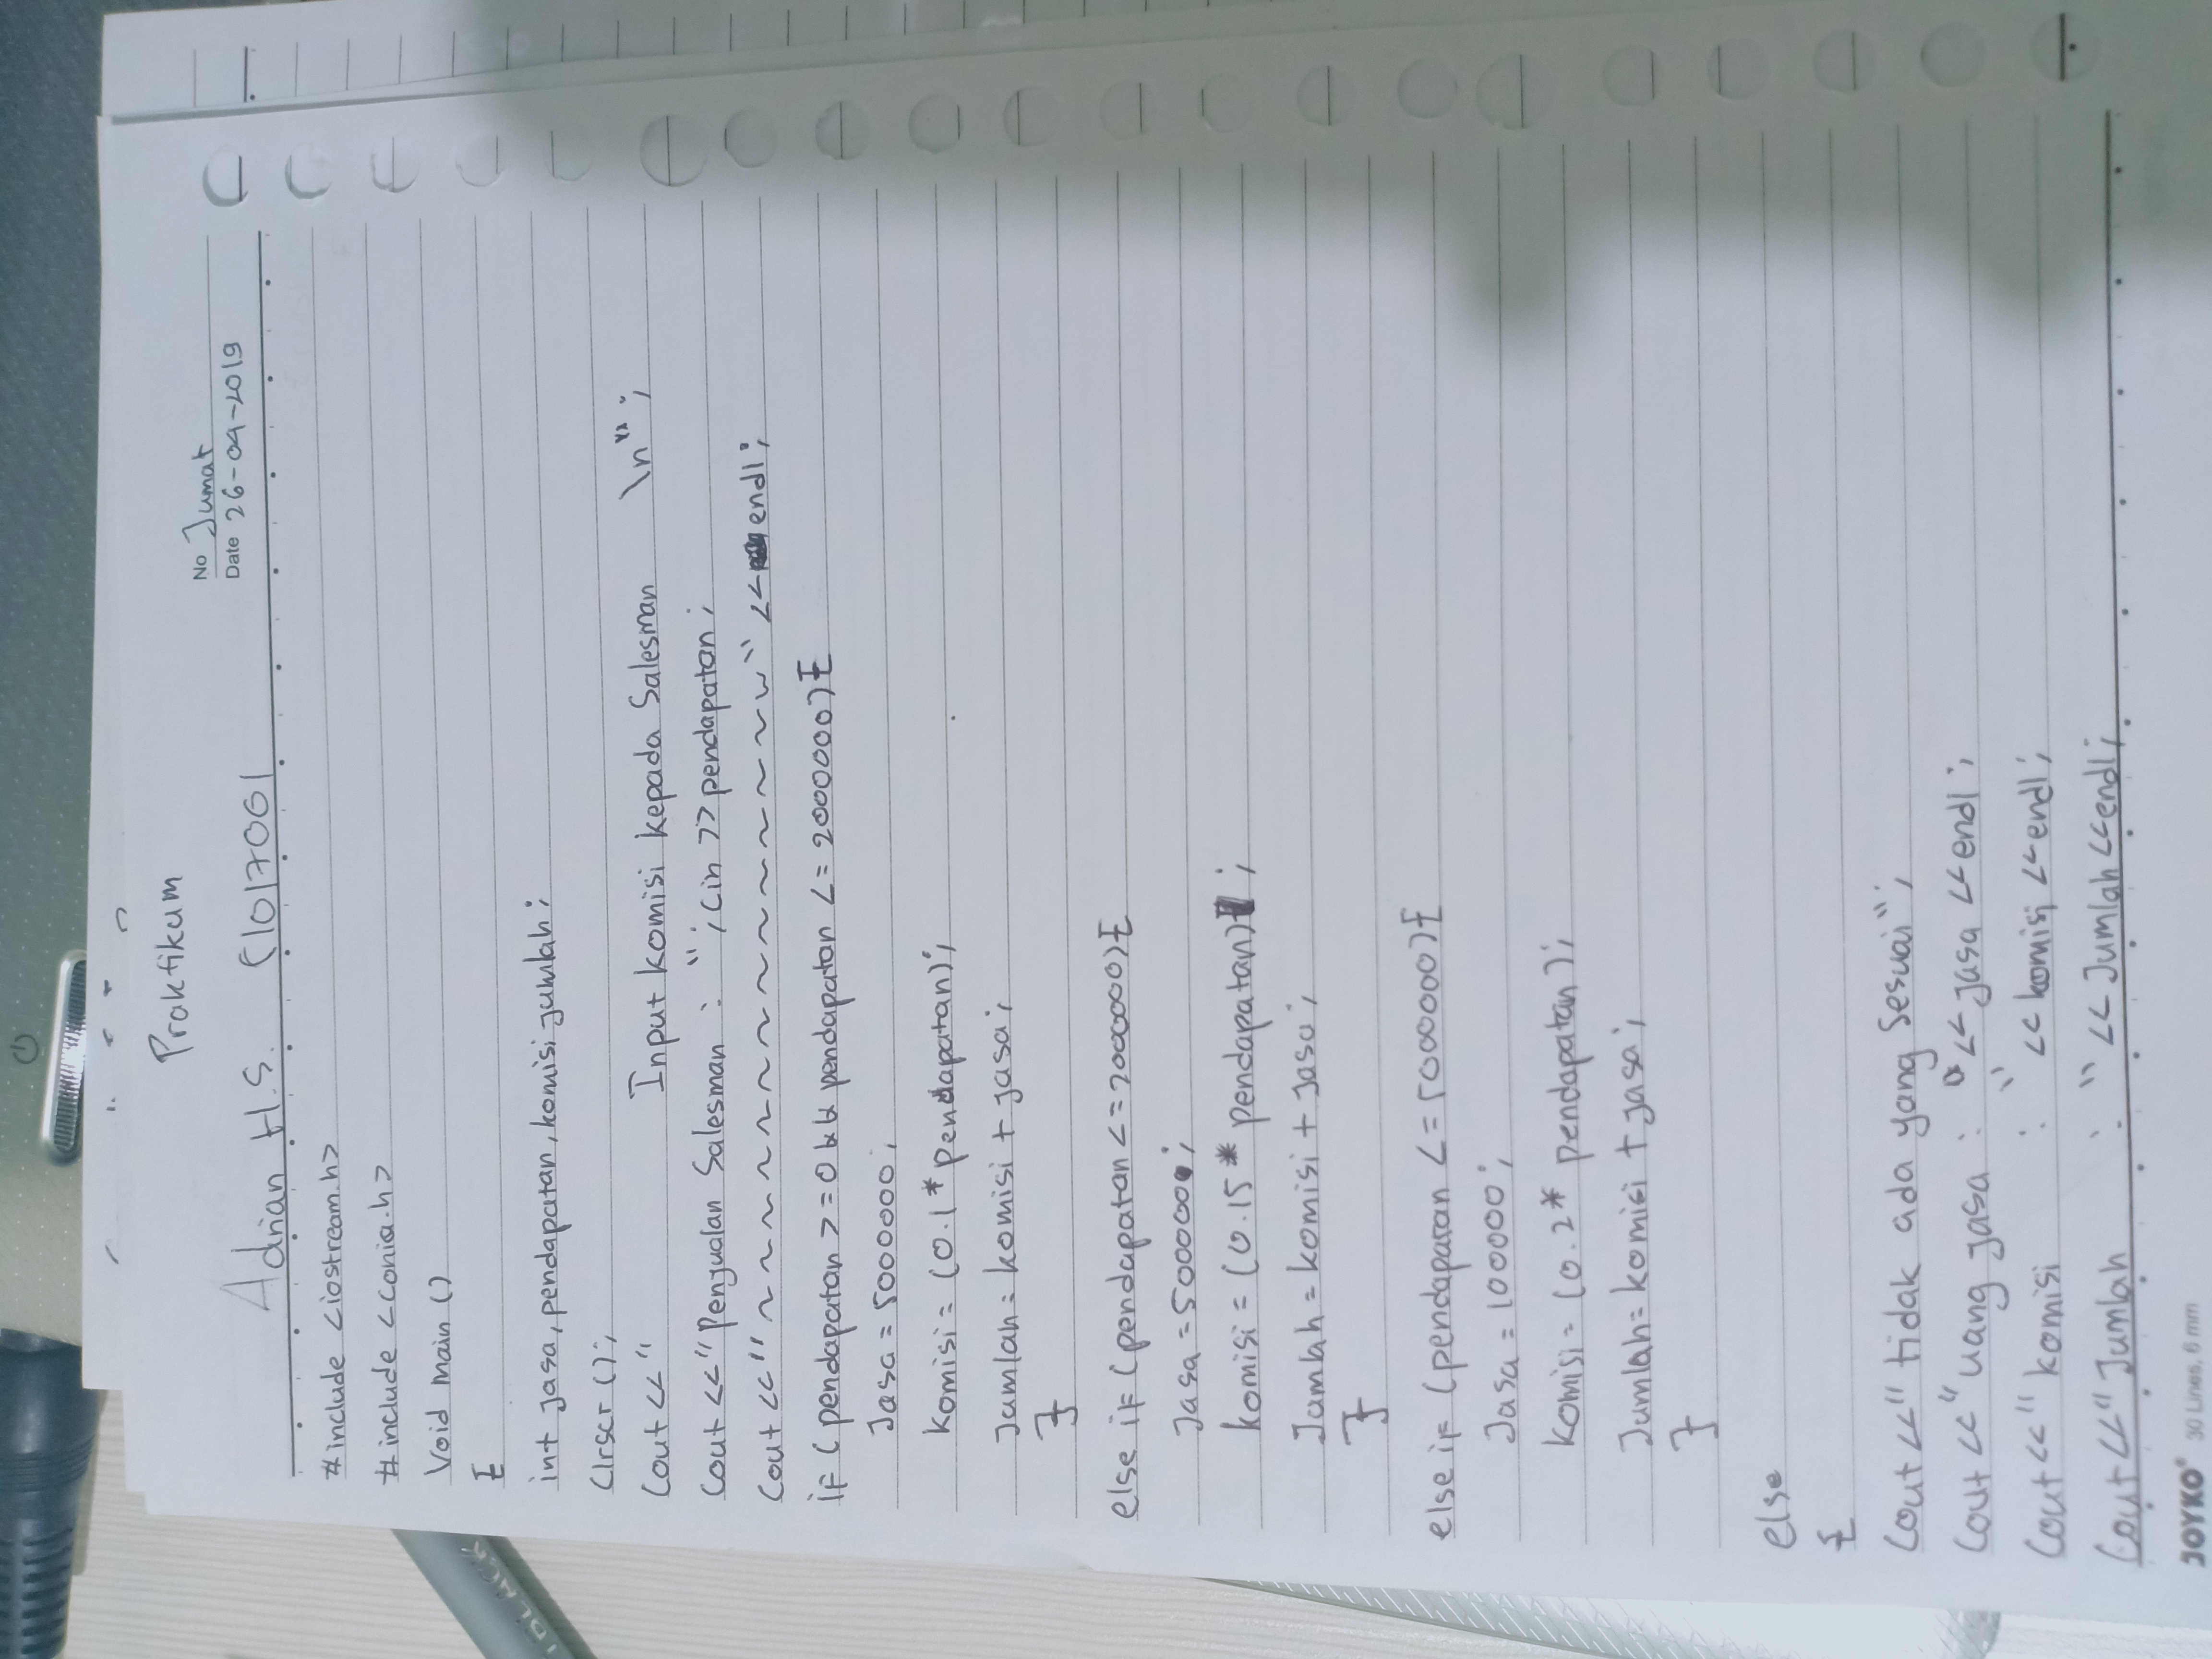 Praktikum
No Jumat
Date 26-04-2019
Adrian H.S. (1017061
#include <iostream.h>
#include <conio.h>
Void main ()
{
int jasa, pendapatan, komisi jumlah;
Clrscr ();
Cout <<" Input komisi kepada Salesman \n";
Cout <<"Penjualan Salesman : "; Cin >> pendapatan;
Cout <<"~~~~~~~~~~~~~~~" << endl;
if (pendapatan >= 0 && pendapatan <= 200000){
Jasa = 500000;
Komisi = (0.1* pendapatan);
Jumlah = komisi + jasa;
}
else if (pendapatan <= 200000){
Jasa = 500000;
komisi = (0.15* pendapatan);
Jumlah = komisi + Jasa;
}
else if (pendapatan <= 500000){
Jasa = 100000;
Komisi = (0.2* pendapatan);
Jumlah = komisi + jasa;
}
else
{
Cout <<" tidak ada yang Sesuai";
Cout <<" uang jasa : " << jasa << endl;
Cout <<" komisi : " << komisi << endl;
Cout <<" Jumlah : " << Jumlah << endl;
JOYKO® 30 Lines, 6 mm